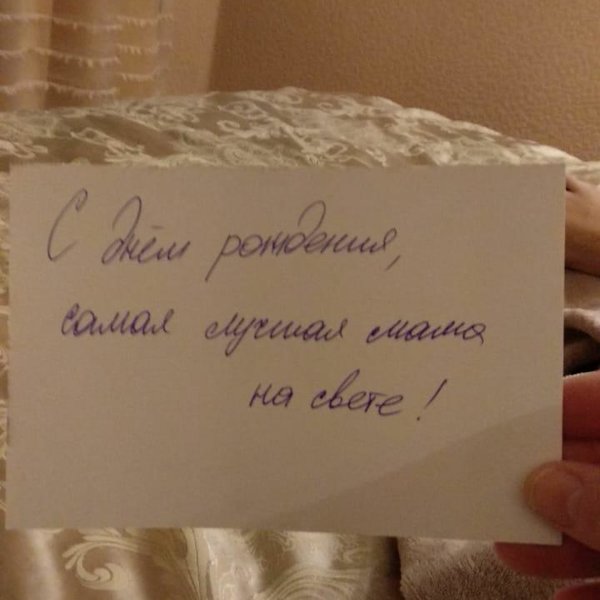 С днём рождения,
самая лучшая мама
на свете!